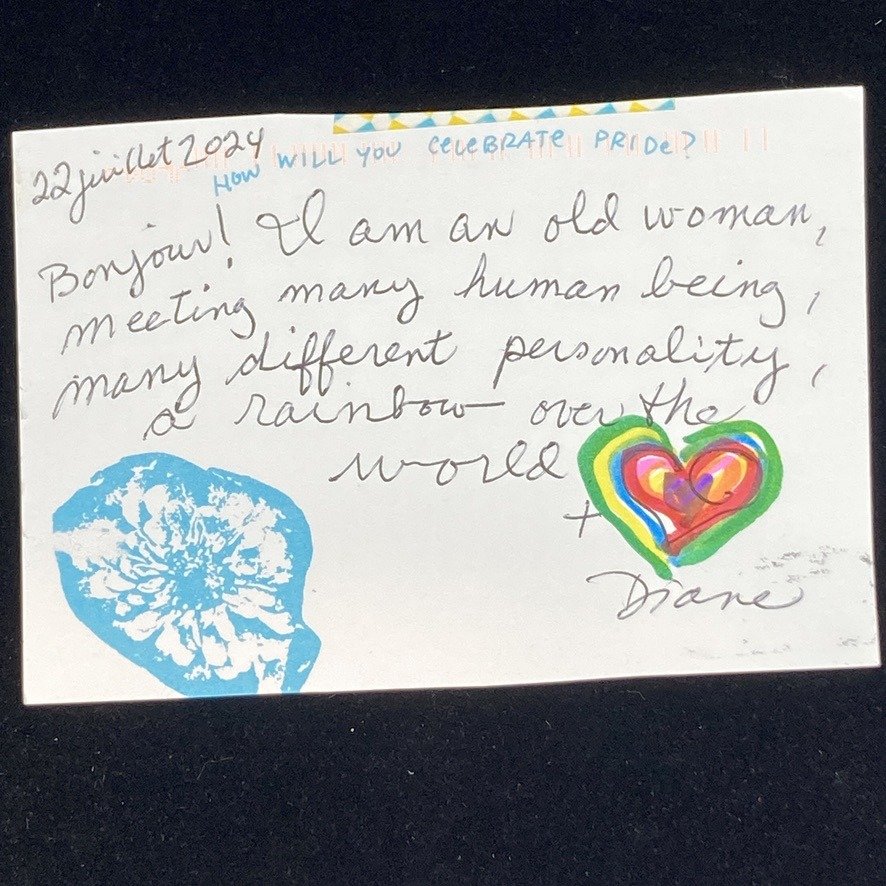 22 juillet 2024
HOW WILL YOU CELEBRATE PRIDE?
Bonjour! I am an old woman,
meeting many human being,
many different personality,
a rainbow over the
world
+
Diane